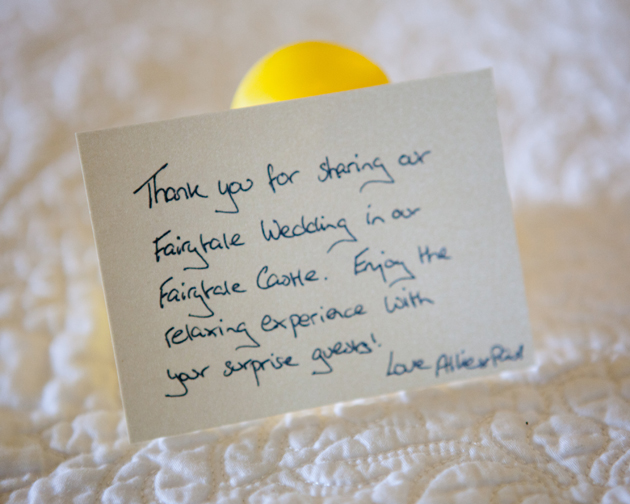 Thank you for sharing our
Fairytale Wedding in our
Fairytale Castle. Enjoy the
relaxing experience with
your surprise guests!
Love Allie & Paul